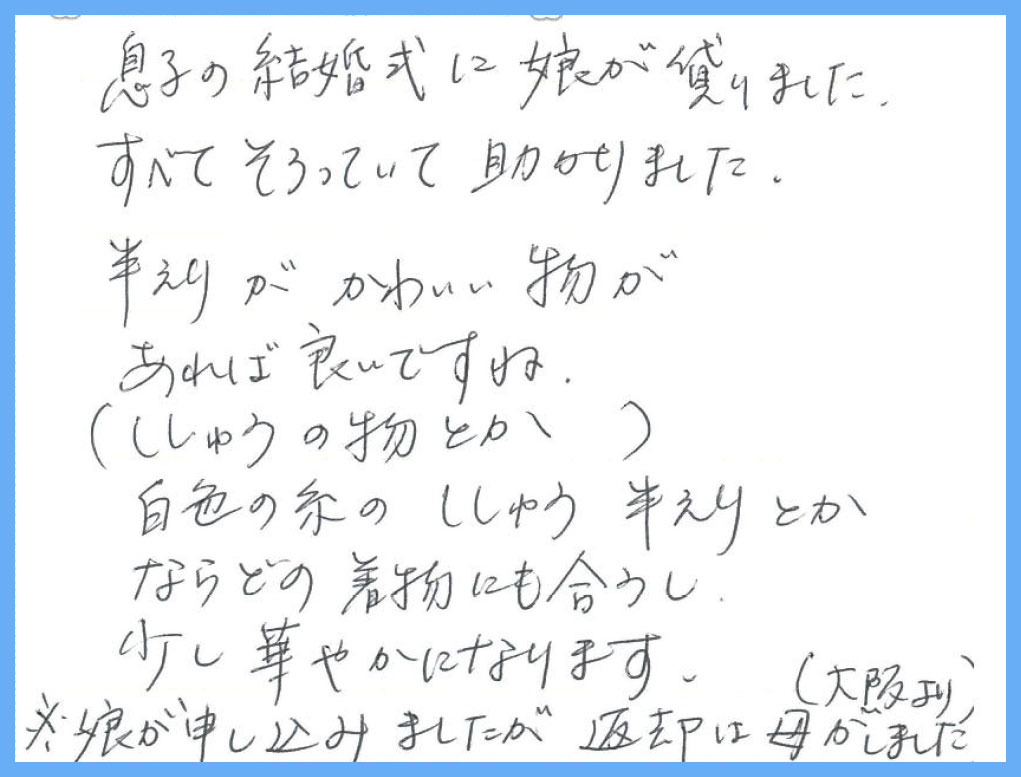 息子の結婚式に娘が貸りました.
すべてそろっていて助かりました.
半えりがかわいい物が
あれば良いですね.
(ししゅうの物とか)
白色の糸のししゅう半えりとか
ならどの着物にも合うし.
少し華やかになります.
(大阪より)
※娘が申し込みましたが返却は母がしました